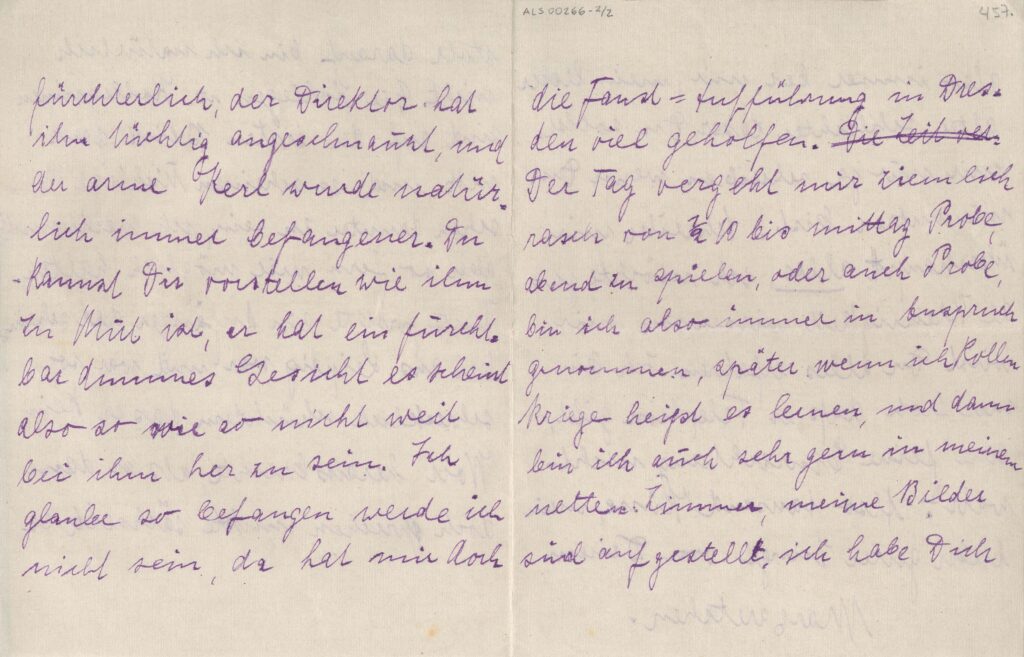 ALS 00266-2/2
457.
fürchterlich, der Direktor hat
ihn tüchtig angeschnauzt, und
der arme Kerl wurde natür-
lich immer befangener. Du
kannst Dir vorstellen wie ihm
zu Mut ist, er hat ein furcht-
bar dummes Gesicht es scheint
also so wie so nicht weit
bei ihm her zu sein. Ich
glaube so befangen werde ich
nicht sein, da hat mir doch
die Faust=Aufführung in Dres-
den viel geholfen. Die Zeit ver-
Der Tag vergeht mir ziemlich
rasch von ½ 10 bis mittag Probe,
abend zu spielen, oder auch Probe,
bin ich also immer in Anspruch
genommen, später wenn ich Rollen
kriege heißt es lernen, und dann
bin ich auch sehr gern in meinen
netten Zimmer, meine Bilder
sind aufgestellt, ich habe Dich